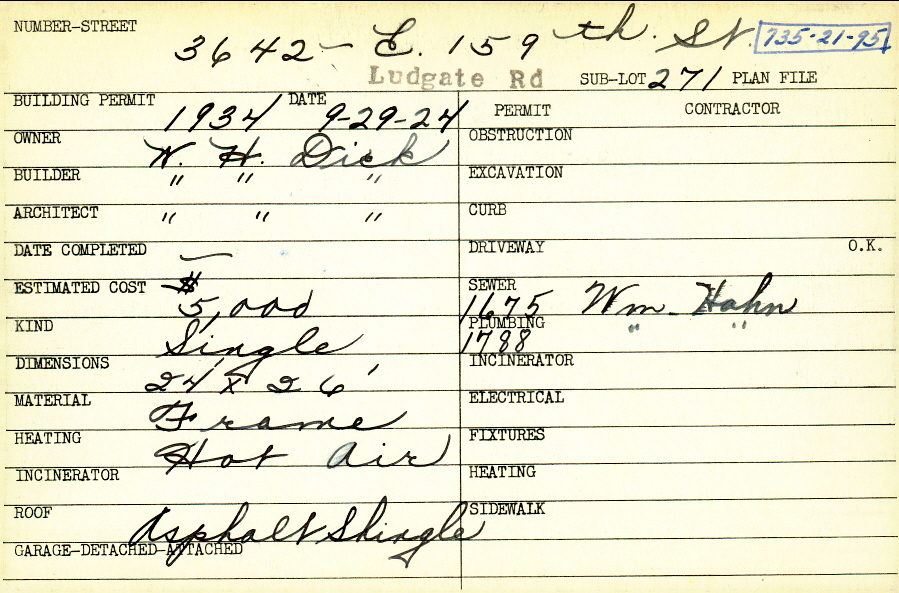 NUMBER-STREET 3642 - E. 159 th. St. 735-21-95
Ludgate Rd SUB-LOT 271 PLAN FILE
BUILDING PERMIT 1934 DATE 9-29-24 PERMIT CONTRACTOR
OWNER W. H. Dick OBSTRUCTION
BUILDER " " " EXCAVATION
ARCHITECT " " " CURB
DATE COMPLETED — DRIVEWAY O.K.
ESTIMATED COST $5,000 SEWER 1675 Wm. Hahn
KIND Single PLUMBING 1788 " "
DIMENSIONS 24 x 26' INCINERATOR
MATERIAL Frame ELECTRICAL
HEATING Hot Air FIXTURES
INCINERATOR HEATING
ROOF Asphalt Shingle SIDEWALK
GARAGE-DETACHED-ATTACHED